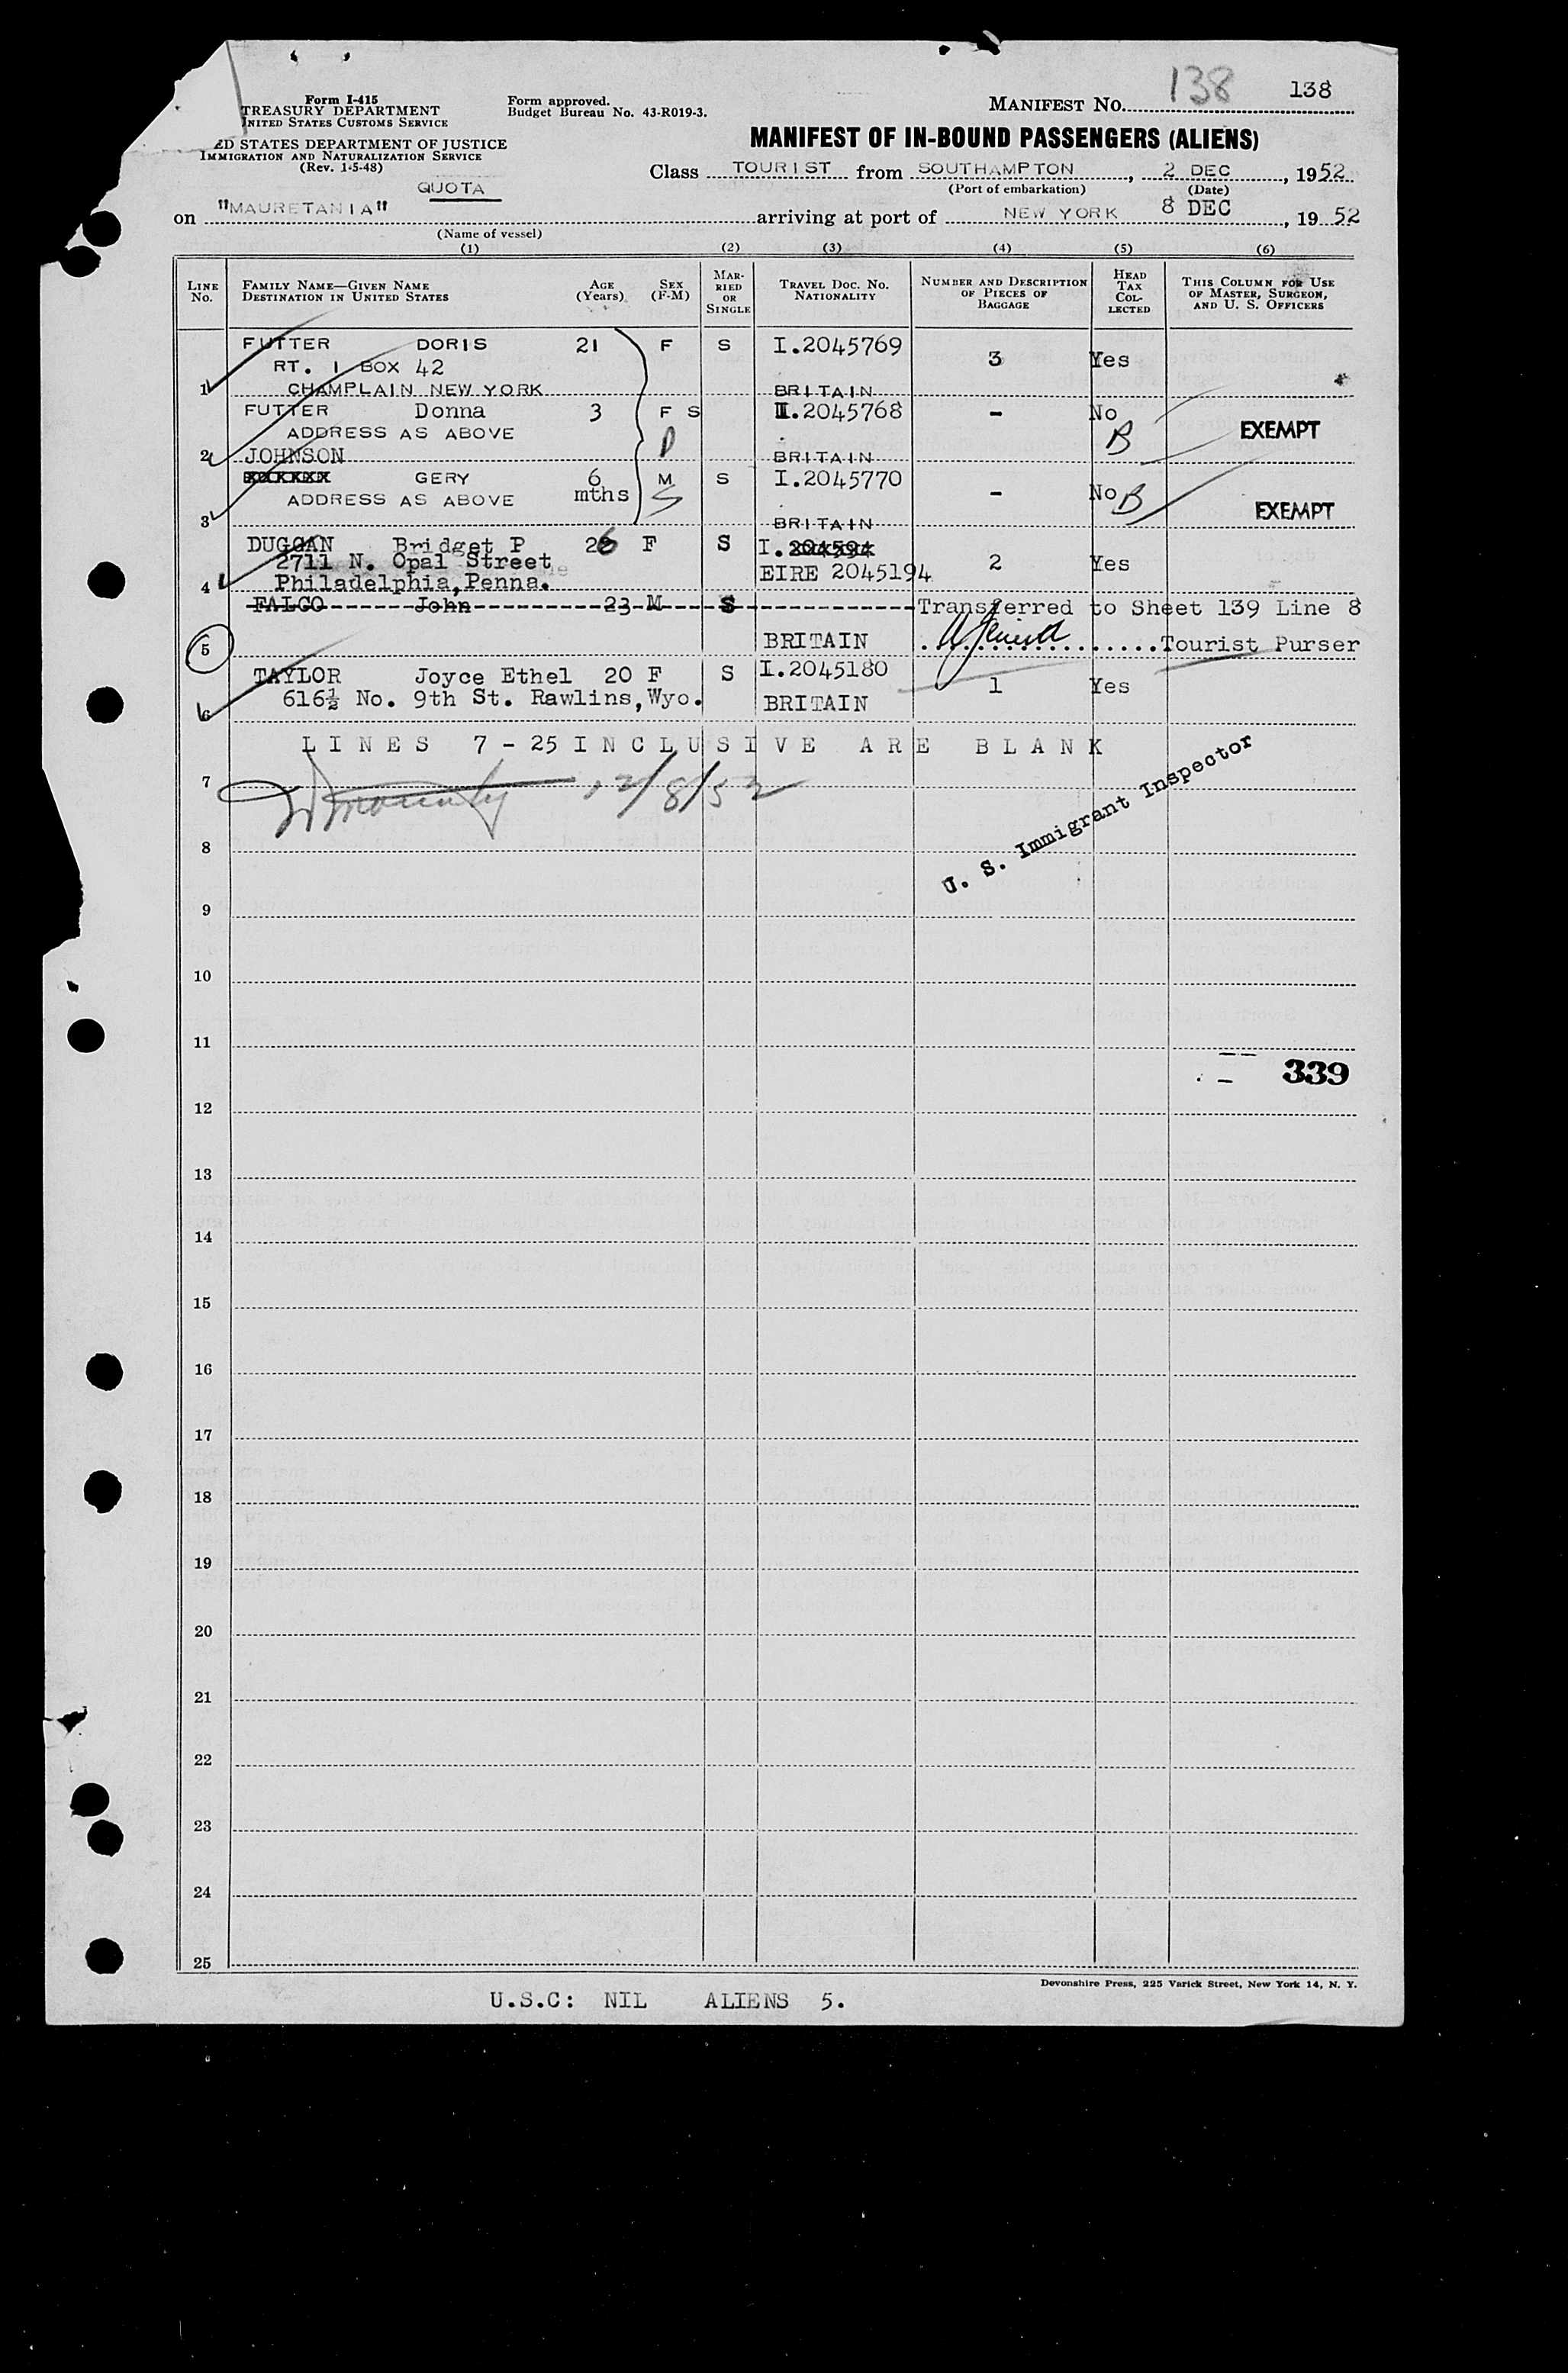 138
MANIFEST NO. 138
Form I-415
TREASURY DEPARTMENT
UNITED STATES CUSTOMS SERVICE
Form approved.
Budget Bureau No. 43-R019-3.
MANIFEST OF IN-BOUND PASSENGERS (ALIENS)
ED STATES DEPARTMENT OF JUSTICE
IMMIGRATION AND NATURALIZATION SERVICE
(Rev. 1-5-48)
Class TOURIST from SOUTHAMPTON, 2 DEC, 1952
(Port of embarkation) (Date)
QUOTA
on "MAURETANIA" arriving at port of NEW YORK 8 DEC, 1952
(Name of vessel)
(1) (2) (3) (4) (5) (6)
LINE NO.
FAMILY NAME—GIVEN NAME
DESTINATION IN UNITED STATES
AGE (Years)
SEX (F-M)
MARRIED OR SINGLE
TRAVEL DOC. NO.
NATIONALITY
NUMBER AND DESCRIPTION OF PIECES OF BAGGAGE
HEAD TAX COLLECTED
THIS COLUMN FOR USE OF MASTER, SURGEON, AND U. S. OFFICERS
FUTTER DORIS 21 F S I.2045769
RT. 1 BOX 42 3 Yes
1 CHAMPLAIN NEW YORK BRITAIN
FUTTER Donna 3 F S I.2045768 - No
ADDRESS AS ABOVE B EXEMPT
2 JOHNSON BRITAIN
GERY 6 mths M S I.2045770
ADDRESS AS ABOVE S - No B EXEMPT
3 BRITAIN
DUGGAN Bridget P 26 F S I.204594
2711 N. Opal Street 2 Yes
4 Philadelphia, Penna. EIRE 2045194
FALCO John 23 M S Transferred to Sheet 139 Line 8
5 BRITAIN Tourist Purser
TAYLOR Joyce Ethel 20 F S I.2045180
616½ No. 9th St. Rawlins, Wyo. 1 Yes
6 BRITAIN
LINES 7 - 25 INCLUSIVE ARE BLANK
7 12/8/52
U. S. Immigrant Inspector
8
9
10
11
339
12
13
14
15
16
17
18
19
20
21
22
23
24
25
Devonshire Press, 225 Varick Street, New York 14, N. Y.
U.S.C: NIL ALIENS 5.